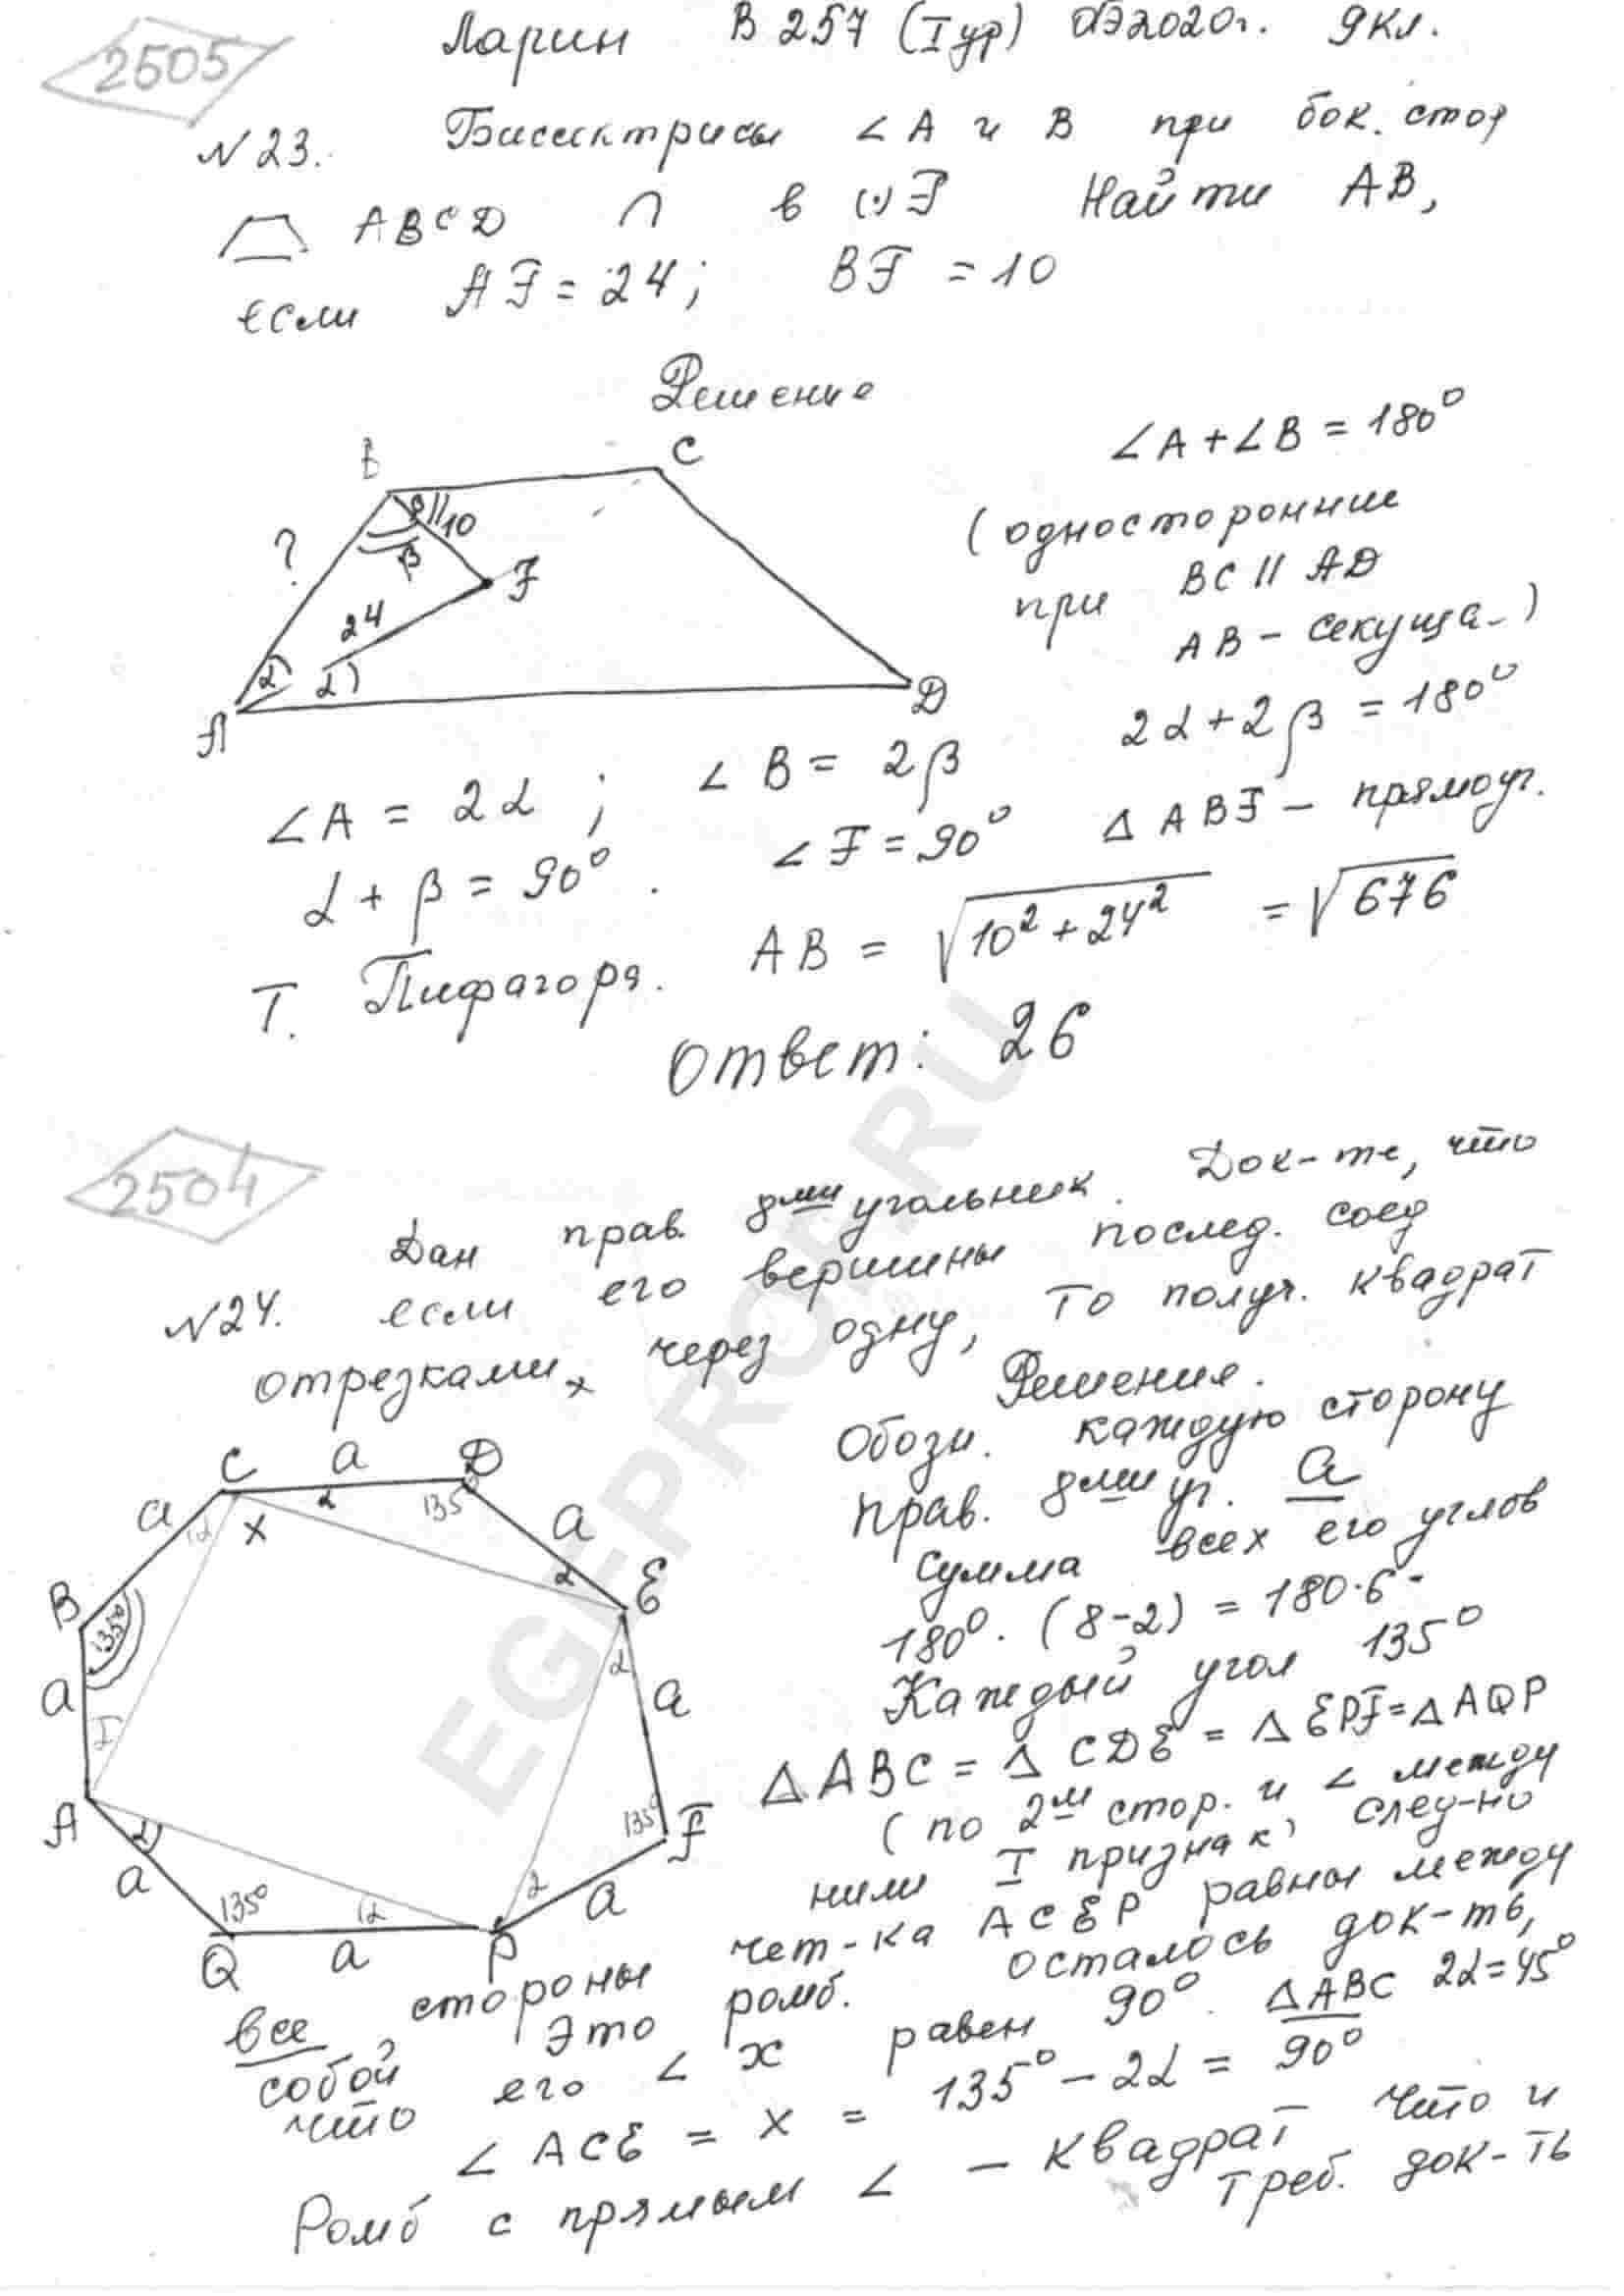 2505
Ларин В 257 (I ур) ОГЭ2020г. 9кл.
N23. Биссектрисы ∠A и B при бок. стор
ABCD ∩ в (•)F Найти AB,
если AF = 24; BF = 10
Решение
B C
? β 10
β F
24
α α
A D
∠A + ∠B = 180°
(односторонние
при BC || AD
AB - секуща-)
2α + 2β = 180°
∠A = 2α ; ∠B = 2β
α + β = 90°. ∠F = 90° △ABF - прямоуг.
Т. Пифагора. AB = √10² + 24² = √676
Ответ: 26
2504
N24. Дан прав. 8ми угольник. Док-те, что
если его вершины послед. соед
отрезками через одну, то получ. квадрат
Решение.
Обозн. каждую сторону
прав. 8ми уг. a
Сумма всех его углов
180°·(8-2) = 180·6
Каждый угол 135°
△ABC = △CDE = △EPF = △AQP
(по 2м стор. и ∠ между
ними I признак) след-но
C a D
a α x α 135° a
B 135° α E
a α α a
A α 135° F
a 135° α α a
Q a P
все стороны чет-ка ACEP равны между
собой Это ромб. осталось док-ть,
что его ∠ x равен 90°. △ABC 2α=45°
∠ACE = x = 135° - 2α = 90°
Ромб с прямым ∠ - квадрат что и
треб. док-ть
EGEPROF.RU